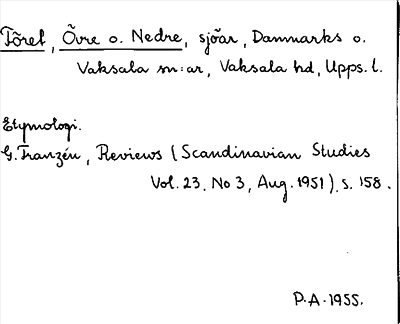 Föret, Övre o. Nedre, sjöar, Danmarks o.
Vaksala sn:ar, Vaksala hd, Upps. l.
Etymologi.
G. Franzén, Reviews (Scandinavian Studies
Vol. 23, No 3, Aug. 1951). s. 158.
P.A. 1955.